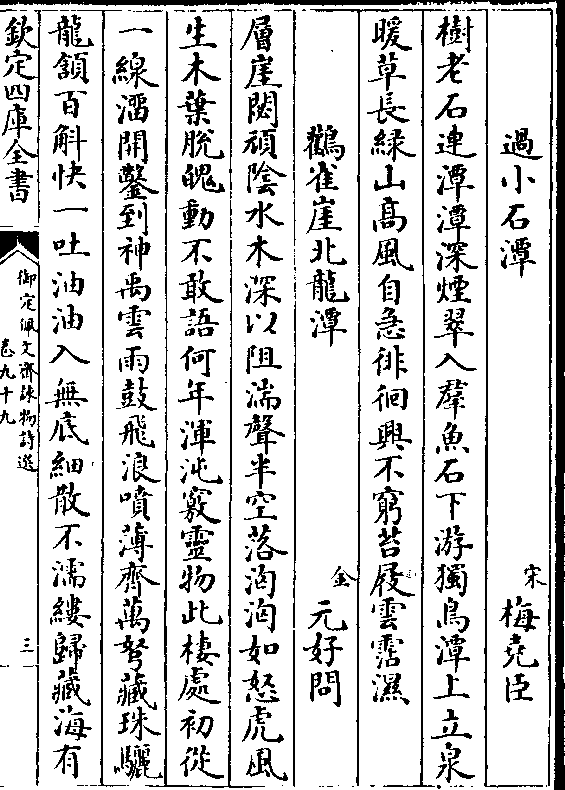 過小石潭 宋 梅堯臣
樹老石連潭潭深煙翠入羣魚石下游獨鳥潭上立泉
暖草長緑山髙風自急徘徊興不窮苔屐雲霑濕
鸛雀崖北龍潭 金 元好問
層崖閟頑陰水木深以阻湍聲半空落洶洶如怒虎風
生木葉脱魄動不敢語何年渾沌竅靈物此棲處初從
一線溜開鑿到神禹雲雨鼓飛浪噴薄齊萬弩藏珠驪
龍頷百斛快一吐油油入無底細散不濡縷歸藏海有
欽定四庫全書
御定佩文齋詠物詩選
卷九十九
三